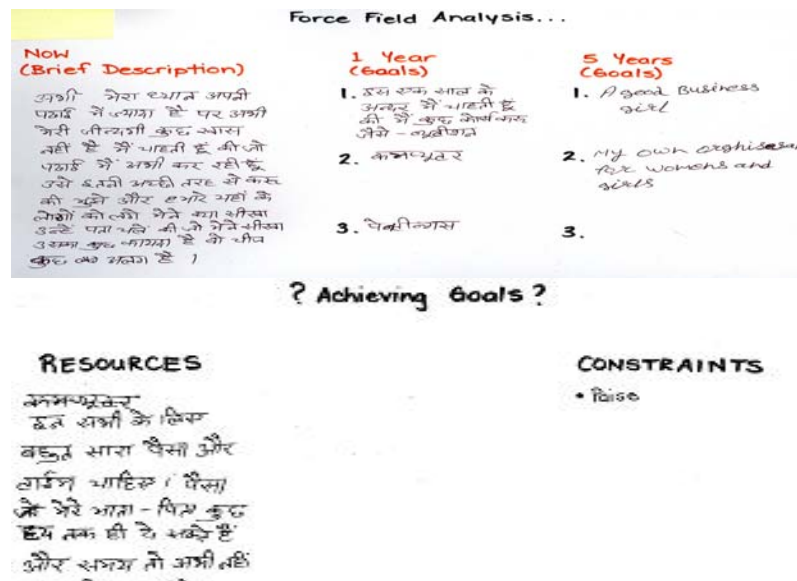 Force Field Analysis...
Now
(Brief Description)
अभी मेरा ध्यान अपनी
पढाई में ज्यादा है पर अभी
मेरी जीन्दगी कुछ खास
नहीं है मैं चाहती हूं की जो
पढाई मैं अभी कर रही हूं
उसे इतनी अच्छी तरह से करू
की मुझे और हमारे यहां के
लोगों को लगे मैने क्या सीखा
उन्हें पता चले की जो मैने सीखा
उसका कुछ फायदा है वो चीज
कुछ अलग है ।
1 Year
(Goals)
1. इस एक साल के
अन्दर मैं चाहती हूं
की मैं कुछ कोर्ष करू
जैसे -
2. कमप्यूटर
3.
5 Years
(Goals)
1. A good Business
girl
2. My own
for womens and
girls
3.
? Achieving Goals ?
RESOURCES
कमप्यूटर
इन सभी के लिए
बहुत सारा पैसा और
टाईम चाहिए । पैसा
जो मेरे माता - पिता कुछ
हद तक ही दे सकते हैं
और समय तो अभी नहीं
CONSTRAINTS
• Paise